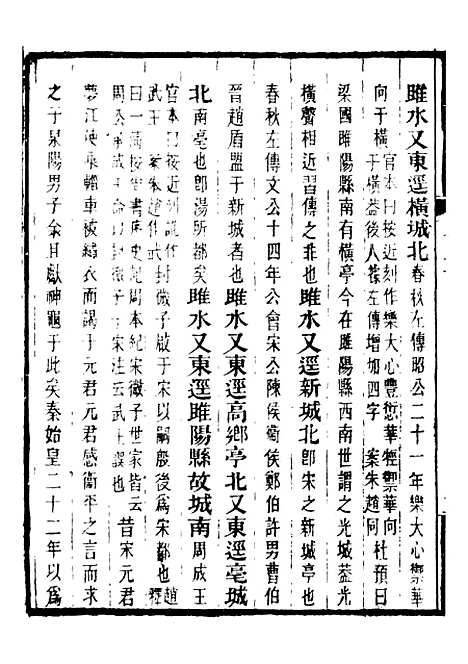 睢水又東逕橫城北春秋左傳昭公二十一年樂大心禦華
向于橫官本曰按近刻作樂大心豐愆華牼禦華向于橫蓋後人從左傳增加四字 案朱趙同杜預曰
梁國睢陽縣南有橫亭今在睢陽縣西南世謂之光城蓋光
橫聲相近習傳之非也睢水又逕新城北卽宋之新城亭也
春秋左傳文公十四年公會宋公陳侯衛侯鄭伯許男曹伯
晉趙盾盟于新城者也睢水又東逕高鄉亭北又東逕亳城
北南亳也卽湯所都矣睢水又東逕睢陽縣故城南周成王
官本曰按近刻訛作武王 案朱趙作武封微子啟于宋以嗣殷後爲宋都也趙
曰一清按尚書序史記周本紀宋徽子世家皆云周公承成王命封微子于宋注云武王誤也昔宋元君
夢江使乘輜車被繡衣而謁于元君元君感衞平之言而求
之于泉陽男子余且獻神龜于此矣秦始皇二十二年以爲